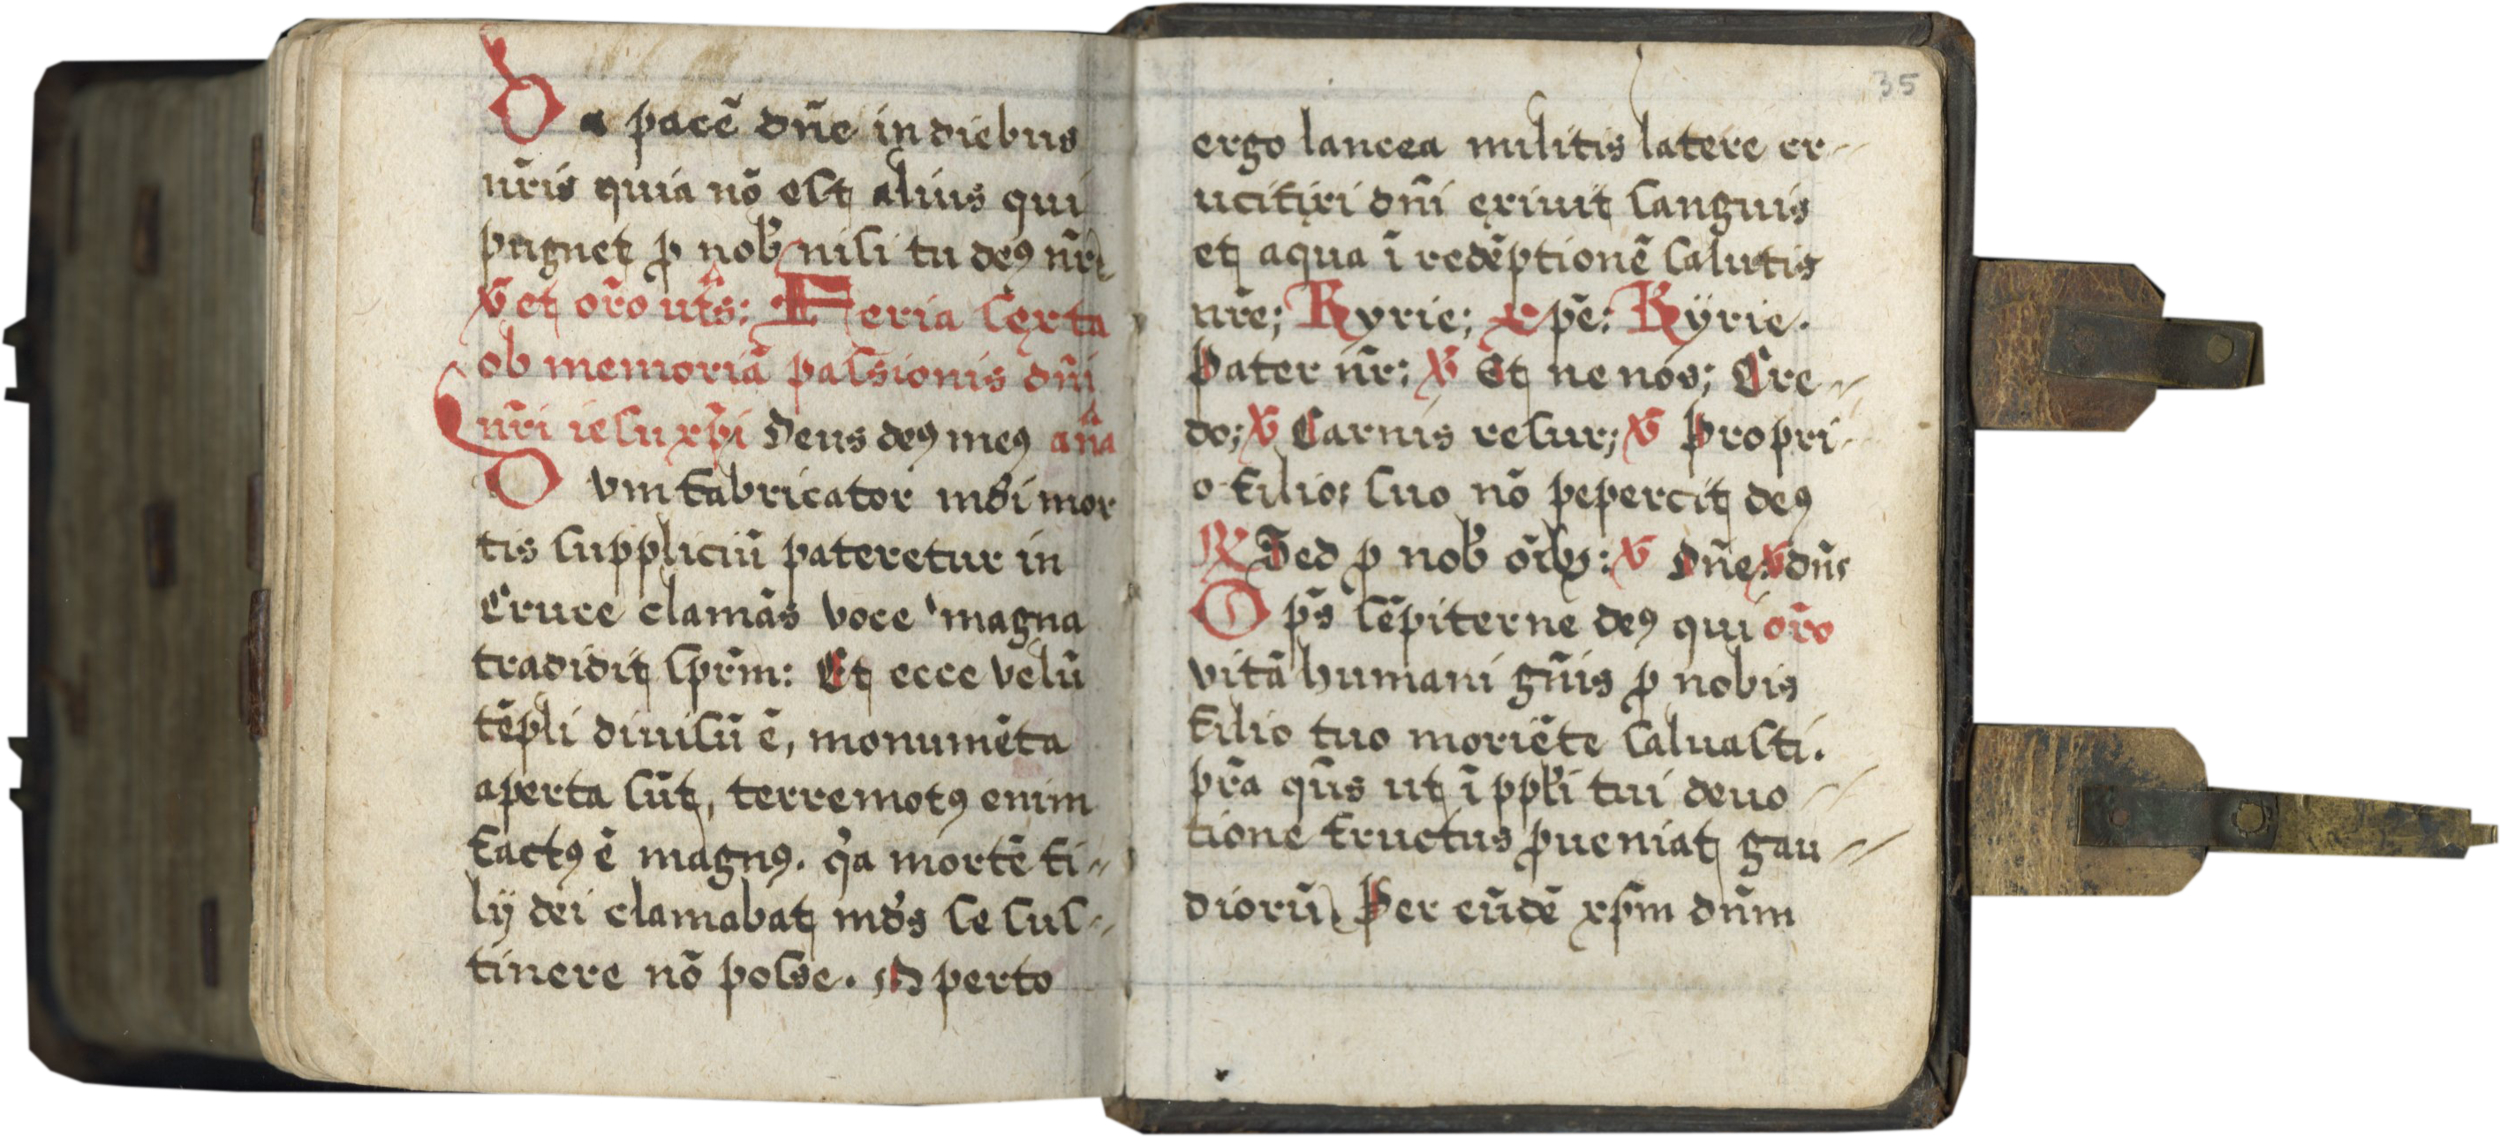 Da pacē dn̄e in diebus
nr̄is quia nō est alius qui
pugnet ꝓ nob̛ nisi tu deꝰ nr̄
℣ et or̄o ut sͣ: Feria sexta
ob memoriā passionis dn̄i
nr̄i iesu xp̄i Deus deꝰ meꝰ an̄a
Dum fabricator mūdi mor
tis suppliciū pateretur in
Cruce clamās voce magna
tradidit spr̄m: Et ecce velū
tēpli diuisū ē, monumēta
aperta sūt, terremotꝰ enim
factꝰ ē magnꝰ. qͥa mortē fi-
lij dei clamabat mūdꝰ se sus-
tinere nō posse. Aperto
35
ergo lancea militis latere cr-
ucifixi dn̄i exiuit sanguis
et aqua ī redēptionē salutis
nr̄e; Kyrie; xp̄e: Kyrie.
Pater nr̄: ℣ Et ne nos; Cre-
do; ℣ Carnis resur; ℣ Propri-
o filio; suo nō pepercit deꝰ
℟ Sed ꝓ nob̛ oīb̛: ℣ Dn̄e ℣ dn̄s
Op̄s sēpiterne deꝰ qui or̄o
vitā humani gn̄is ꝓ nobis
filio tuo moriēte saluasti.
pr̄a qn̄s ut ī ppl̄i tui deuo
tione fructus ꝓueniat gau
diorū. Per eūdē xp̄m dn̄m